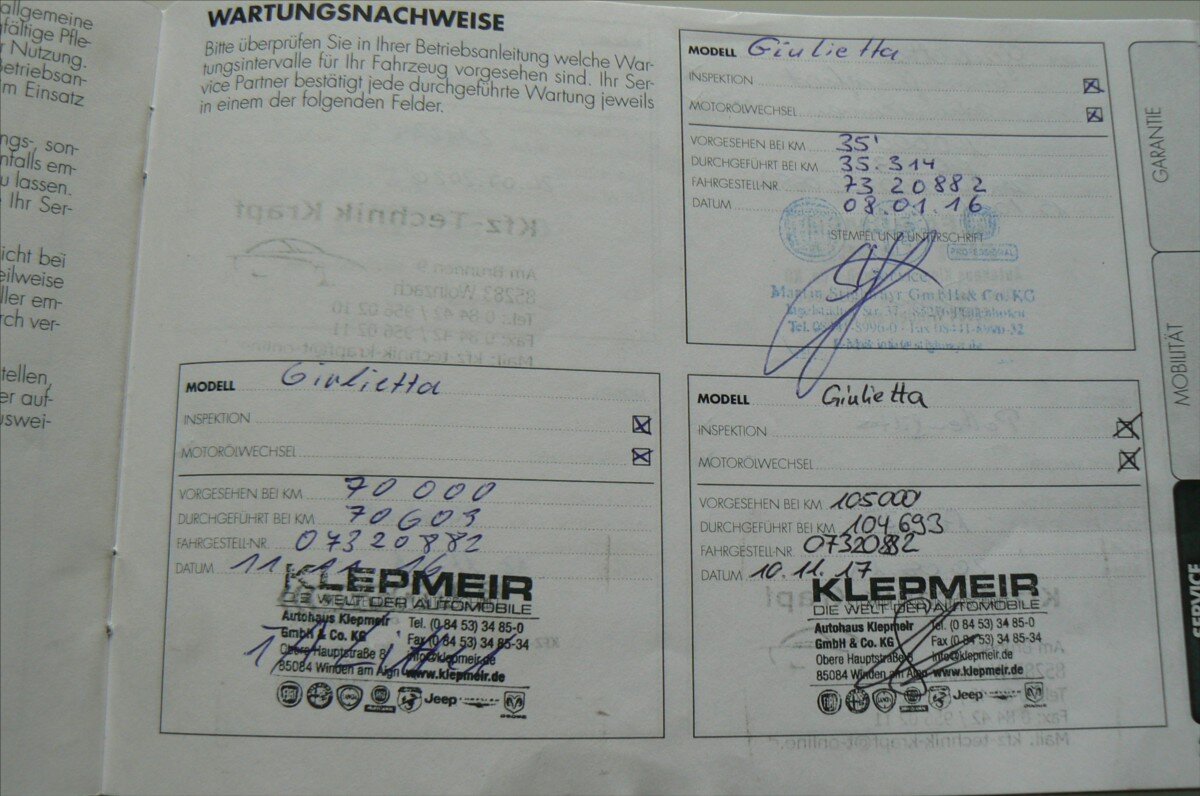 allgemeine
fältige Pfle-
Nutzung.
Betriebsan-
m Einsatz
ngs-, son-
nfalls em-
u lassen.
Ihr Ser-
icht bei
eilweise
ller em-
rch ver-
tellen,
er auf-
uswei-
WARTUNGSNACHWEISE
Bitte überprüfen Sie in Ihrer Betriebsanleitung welche War-
tungsintervalle für Ihr Fahrzeug vorgesehen sind. Ihr Ser-
vice Partner bestätigt jede durchgeführte Wartung jeweils
in einem der folgenden Felder.
MODELL Giulietta
INSPEKTION
MOTORÖLWECHSEL
VORGESEHEN BEI KM 35'
DURCHGEFÜHRT BEI KM 35.314
FAHRGESTELL-NR. 73 20882
DATUM 08.01.16
STEMPEL UND UNTERSCHRIFT
PROFESSIONAL
GmbH & Co. KG
MODELL Giulietta
INSPEKTION
MOTORÖLWECHSEL
VORGESEHEN BEI KM 70 000
DURCHGEFÜHRT BEI KM 70609
FAHRGESTELL-NR. 07320882
DATUM 11.11.16
KLEPMEIR
DIE WELT DER AUTOMOBILE
Autohaus Klepmeir Tel. (0 84 53) 34 85-0
GmbH & Co. KG Fax (0 84 53) 34 85-34
Obere Hauptstraße 8 info@klepmeir.de
85084 Winden am Aign www.klepmeir.de
Jeep
MODELL Giulietta
INSPEKTION
MOTORÖLWECHSEL
VORGESEHEN BEI KM 105000
DURCHGEFÜHRT BEI KM 104693
FAHRGESTELL-NR. 07320882
DATUM 10.11.17
KLEPMEIR
DIE WELT DER AUTOMOBILE
Autohaus Klepmeir Tel. (0 84 53) 34 85-0
GmbH & Co. KG Fax (0 84 53) 34 85-34
Obere Hauptstraße 8 info@klepmeir.de
85084 Winden am Aign www.klepmeir.de
Jeep
GARANTIE
MOBILITÄT
SERVICE